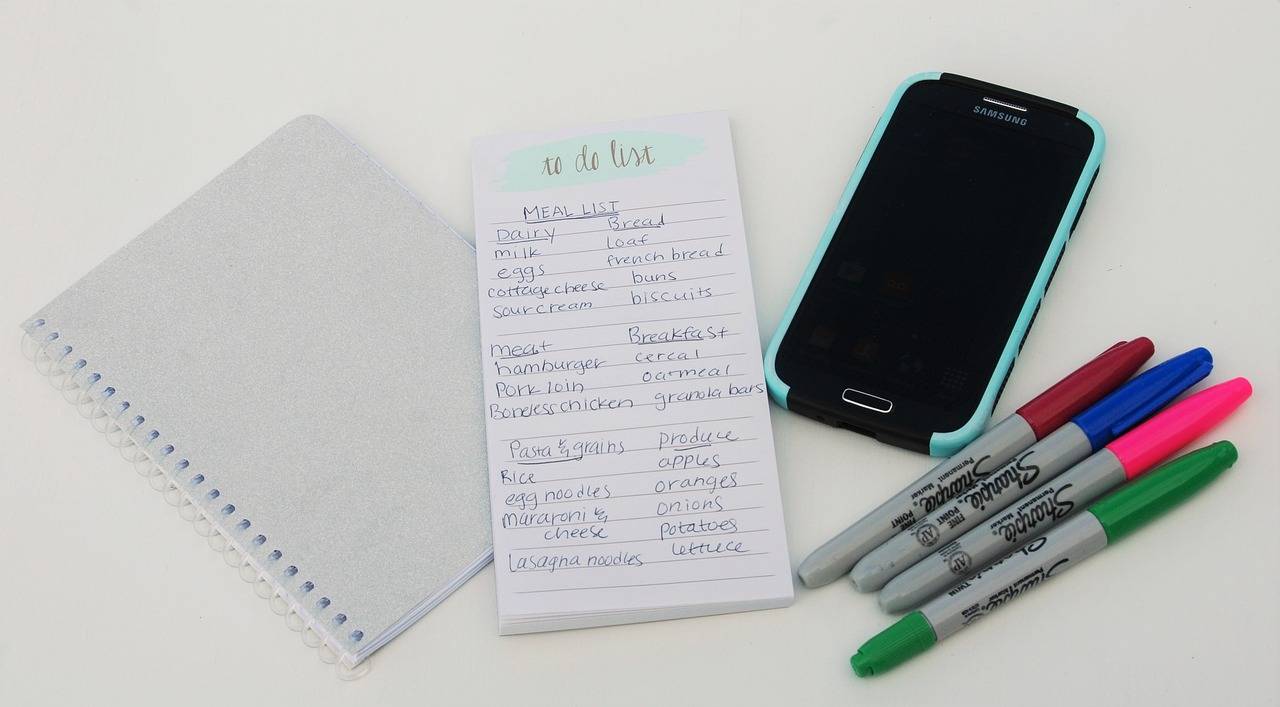 to do list
MEAL LIST
Dairy
milk
eggs
cottage cheese
sour cream
Bread
loaf
french bread
buns
biscuits
meat
hamburger
Pork loin
Boneless chicken
Breakfast
cereal
oatmeal
granola bars
Pasta & grains
Rice
egg noodles
mararoni &
cheese
lasagna noodles
produce
apples
oranges
onions
potatoes
lettuce
SAMSUNG
Sharpie
FINE POINT
Permanent Marker
Sharpie
FINE POINT
Permanent Marker
AP
Sharpie
Permanent Marker
AP
Sharpie
Permanent Marker
TWIN